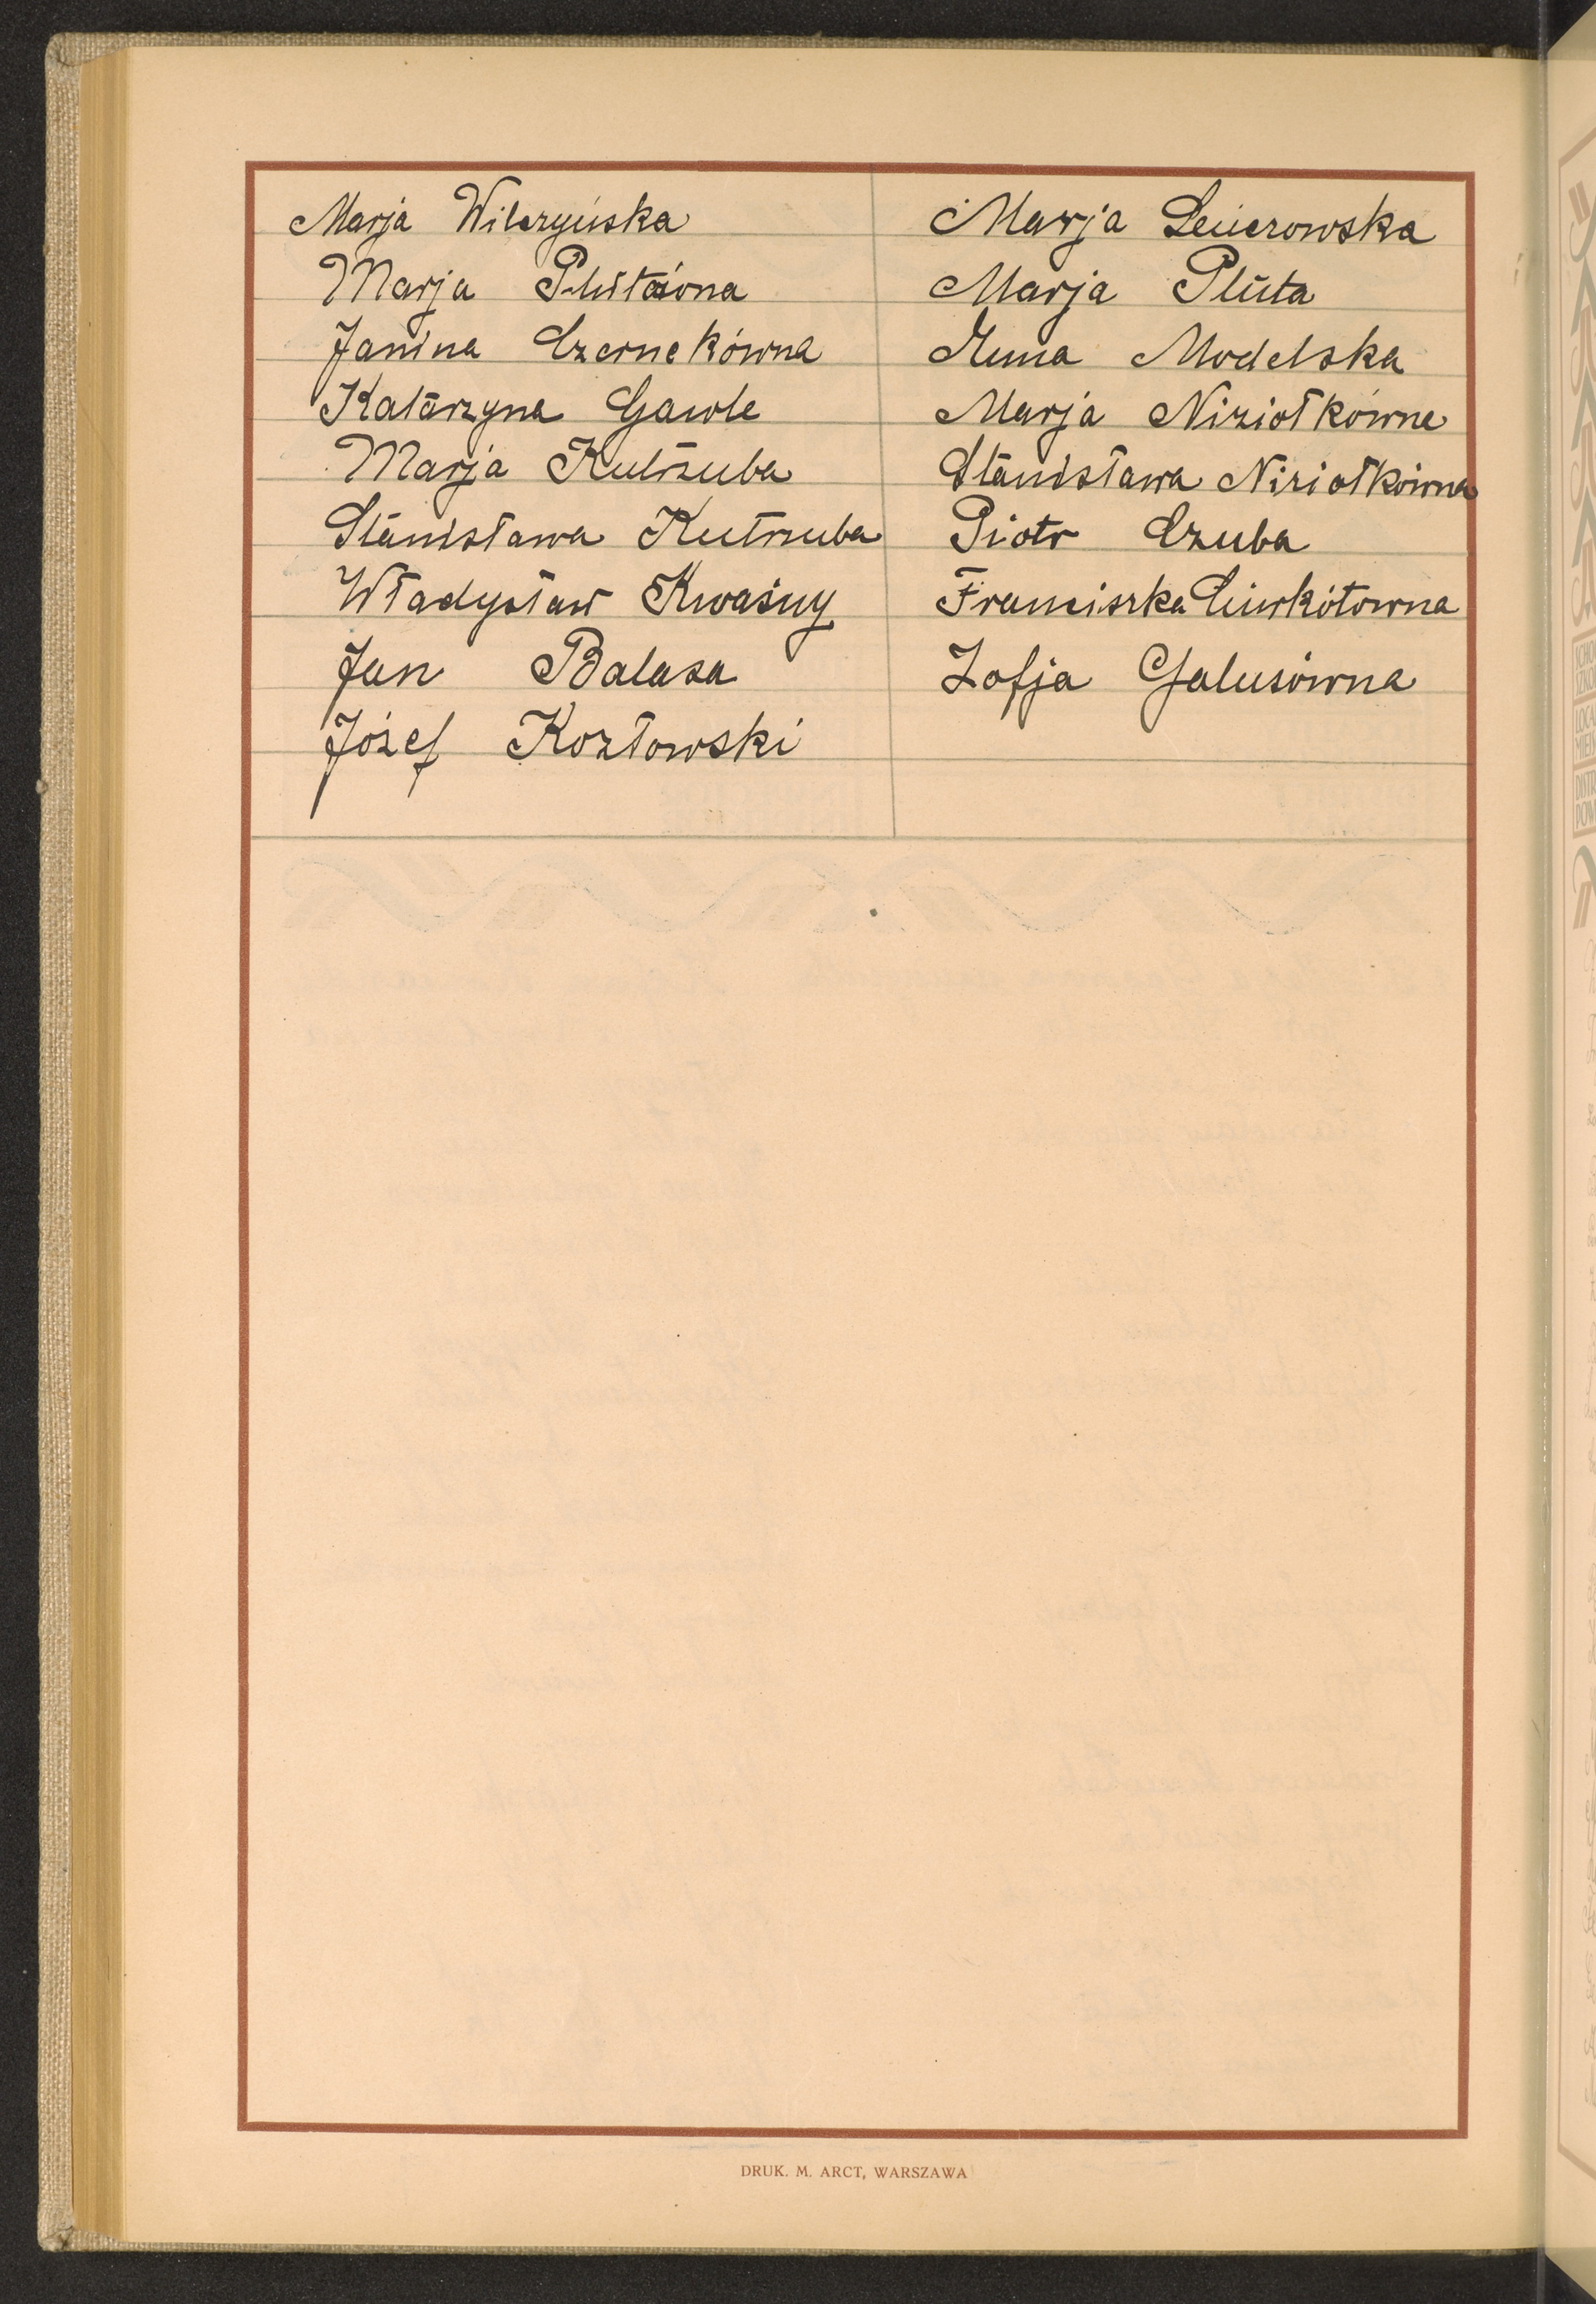 Marja Wilczyńska
Marja Plutówna
Janina Czernekówna
Katarzyna Gawle
Marja Kutrzuba
Stanisława Kutrzuba
Władysław Kwaśny
Jan Balasa
Józef Kozłowski
Marja
Marja Pluta
Modelska
Marja Niziołkówna
Stanisława Niziołkówna
Piotr Czuba
Franciszka
Zofja Galusówna
DRUK. M. ARCT, WARSZAWA